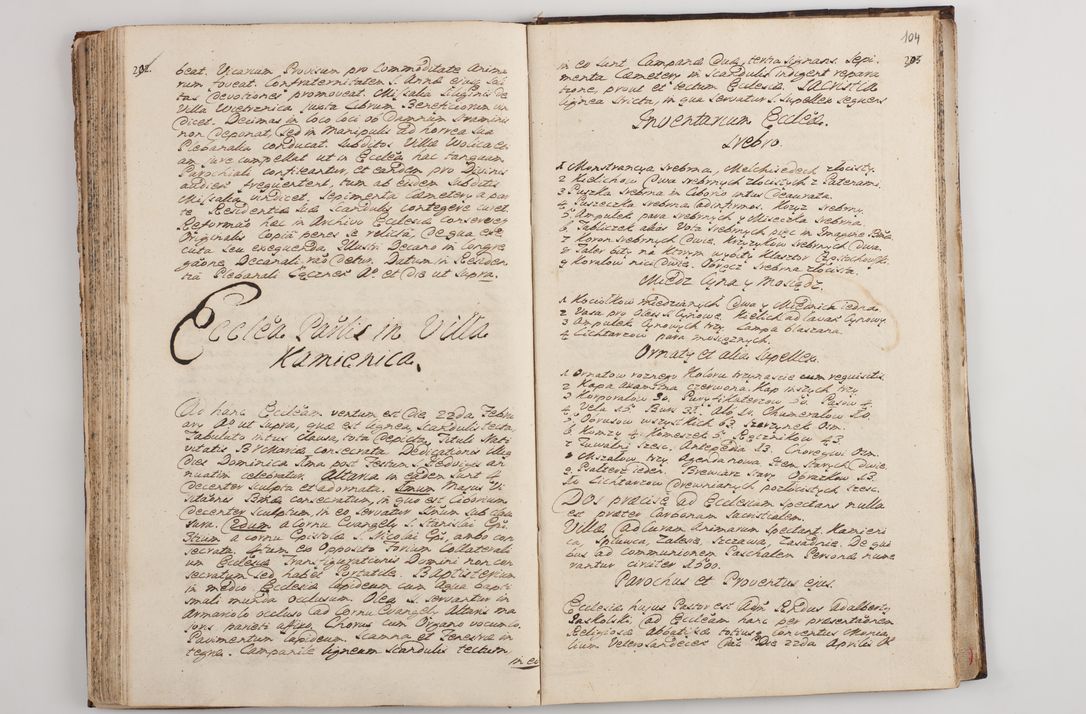 202.
beat. Vicarium Provisum pro Commoditate Anima
rum foveat. Confraternitatem S. Annæ ejusq
tas Devotiones promoveat. Missalia Siliginis de
Villa Wietrznica juxta Librum Beneficiorum vin
dicet. Decimas in loco loci ob Damnum straminis
non Deponat, Sed in Manipulis ad horrea sua
Plebanalia conducat. Subditos Villæ
am jure compellat ut in Ecclĩa hac tanquam
Parochiali confiteantur, et eandem pro Divinis
audien frequentent, tum ab eisdem Subditis
Missalia vindicet. Sepimenta Cæmeterij a par
te Residentiæ suæ Scandulis contegere curet
Reformaõ hæc in Archivo Ecclesiæ conservetur
Originalis Copia penes se relicta De qua exe
cuta seu exequenda, Illustri Decano in Congre
gaõne Decanali raõ Detur. Datum in Residen
tia Plebanali Łącznen Aõ et Die ut Supra.
Ecclĩa Parlis in Villa
Kamienica.
Ad hanc Ecclĩam ventum est Die 22da Febru
arij Aõ ut Supra, quæ est lignea, Scandulis tecta,
Tabulato intus clausa, tota Depicta, Tituli Nati
vitatis B: V: Mariæ, consecrata. Dedicationis illius
Dies Dominica Ima post Festum S. Hedvigis an
nuatim celebratur. Altaria in eadem sunt 4
Decenter sculpta et adornata. Imum Majus Vi
sitaõnis Bttæ consecratum, in quo est Ciborium
Decenter sculptum, in eo servatur Ssmum sub clau
sura. 2dum a Cornu Evangelij S. Stanislai Epi.
3tium a cornu Epistolæ S. Nicolai Epi, ambo con
secrata. 4tum ex Opposito Forium Collaterali
um Ecclesiæ Transfigurationis Domini non con
secratum sed habet Portatile. Baptisterium
in medio Ecclesiæ lapideum cum Aqua bapti
smali munda occlusum. Olea S. servantur in
Armariolo occluso ad Cornu Evangelij Altaris ma
joris parieti affixo. Chorus cum Organo vocum 10.
Pavimentum lapideum. Scamna et Fenestræ in
tegræ. Campanile ligneum Scandulis tectum
in eo
104
203
in eo sunt Campanæ Duæ, tertia signans. Sepi
menta Cæmeterij in Scandulis indigent repara
tione, prout et tectum Ecclesiæ. Sacristia
lignea stricta, in qua servatur Supellex sequens
Inventarium Ecclĩæ.
Srebro.
1 Monstrancya Srebrna, Melchisedech złocisty.
2 Kielichow Dwa srebrnych złocistych z Patenami.
3 Puszka Srebrna in Ciborio intus Deaurata.
4 Puszeczka Srebrna ad infirmos. Krzyz Srebrny.
5 Ampułek para Srebrnych y Miseczka Srebrna.
6 Tabliczek alias Vota Srebrnych pięc in Imagine Bttæ.
7 Koron srebrnych Dwie. Krzyzykow Srebrnych Dwa.
8 Taler bity na ktorym wybity Klasztor Częstochowski.
9 Koralow nici Dwie. Obrącz Srebrna złocista.
Miedz Cyna y Mosiądz.
1 Kociołkow miedzianych Dwa y Miednica iedna.
2 Vasa pro Oleis S. Cynowe. Kielich ad lavat: Cynowy.
3 Ampułek Cynowych trzy. Lampa blaszana.
4 Lichtarzow para mosięznych.
Ornaty et alia Supellex.
1 Ornatow roznego Koloru trzynascie cum requisitis.
2 Kapa axamitna czerwona. Kap inszych trzy.
3 Korporałow 30. Puryfikaterzow 50. Pasow 4.
4 Vela 15. Burs 31. Alb 10. Humerałow 10.
5 Obrusow wszystkich 63.
6 Komzy 4. Komeszek 5. Ręcznikow 43.
7 Tuwalni szesc. Antepedia 13. Choręgwi Osm.
8 Mszałow trzy. Agenda nowa. Item Starych Dwie.
9. Psałterz ieden. Brewiarz Stary. Obrazkow 13.
10 Lichtarzow Drewnianych pozłocistych szesc.
Dos præcise ad Ecclesiam Spectans nulla
est præter Carbonam Sacristialem.
Villæ ad Curam Animarum Spectant, Kamieni
ca, Szczawa, Zasadnie. De qui
bus ad communionem Paschalem Personæ nume
rantur circiter 1500.
Parochus et Proventus ejus.
Ecclesiæ hujus Pastor est Adm Rndus Adalbertus
Paskolski. Ad Ecclĩam hanc per præsentaõnem
Religiosæ Abbatissæ totiusq conventus Monia
lium Veterosandecen Die 22da Aprilis Aõ